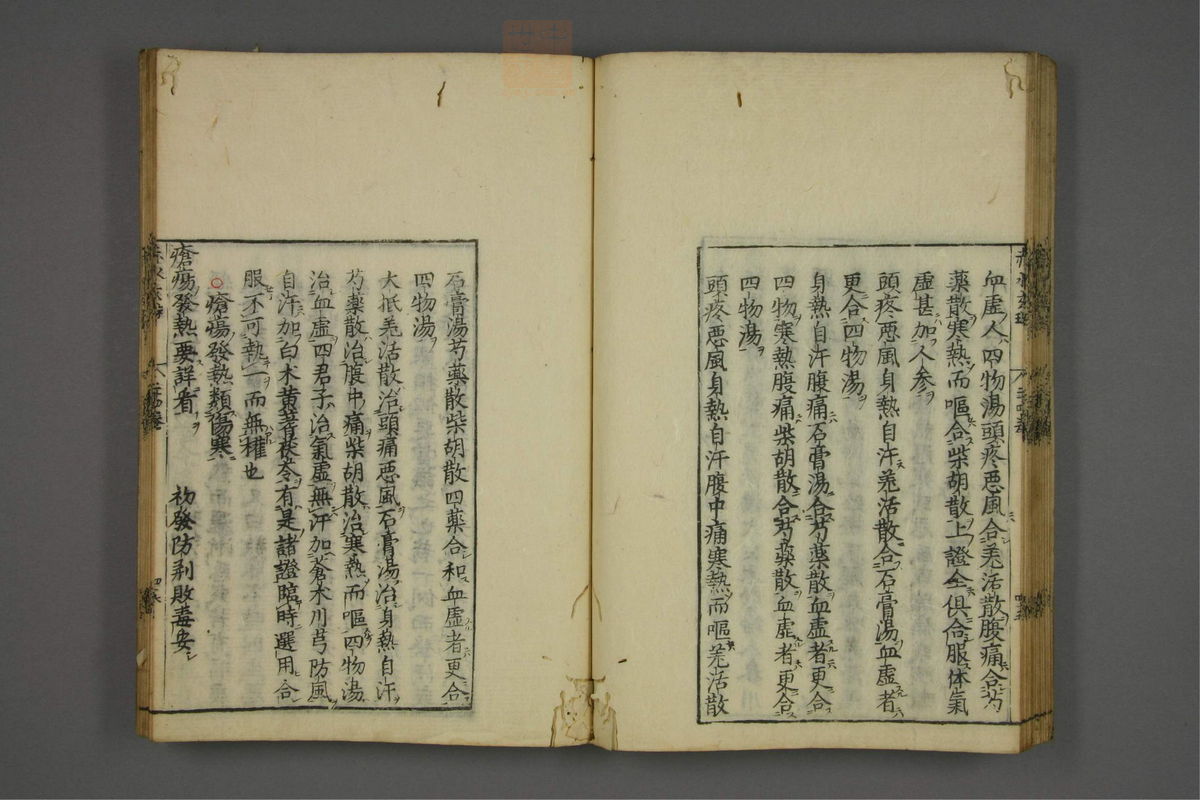 血虚人四物湯頭疼悪風合羌活散腹痛合芍
薬散寒熱而嘔合柴胡散上證全俱合服体氣
虚甚加人参
頭疼悪風身熱自汗羌活散合石膏湯血虚者
更合四物湯
身熱自汗腹痛石膏湯合芍薬散血虚者更合
四物寒熱腹痛柴胡散合芍薬散血虚者更合
四物湯
頭疼悪風身熱自汗腹中痛寒熱而嘔羌活散
石膏湯芍薬散柴胡散四薬合和血虚者更合
四物湯
大抵羌活散治頭痛悪風石膏湯治身熱自汗
芍薬散治腹中痛柴胡散治寒熱而嘔四物湯
治血虚四君子治氣虚無汗加蒼术川芎防風
自汗加白术黄芪茯苓有是諸證臨時選用合
服不可執一而無權也
瘡瘍發熱類傷寒
瘡瘍發熱要詳看 初發防荊敗毒安